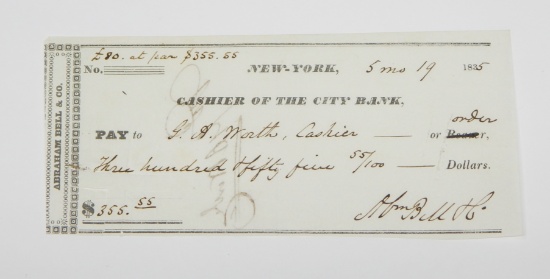 ABRAHAM BELL & CO.
£80. at par $355.55
No.
NEW-YORK, 5 mo 19 1835
CASHIER OF THE CITY BANK,
order
PAY to G. A. Worth, Cashier — or Bearer,
Three hundred & fifty five 55/100 — Dollars.
$355.55
Abm Bell & Co.